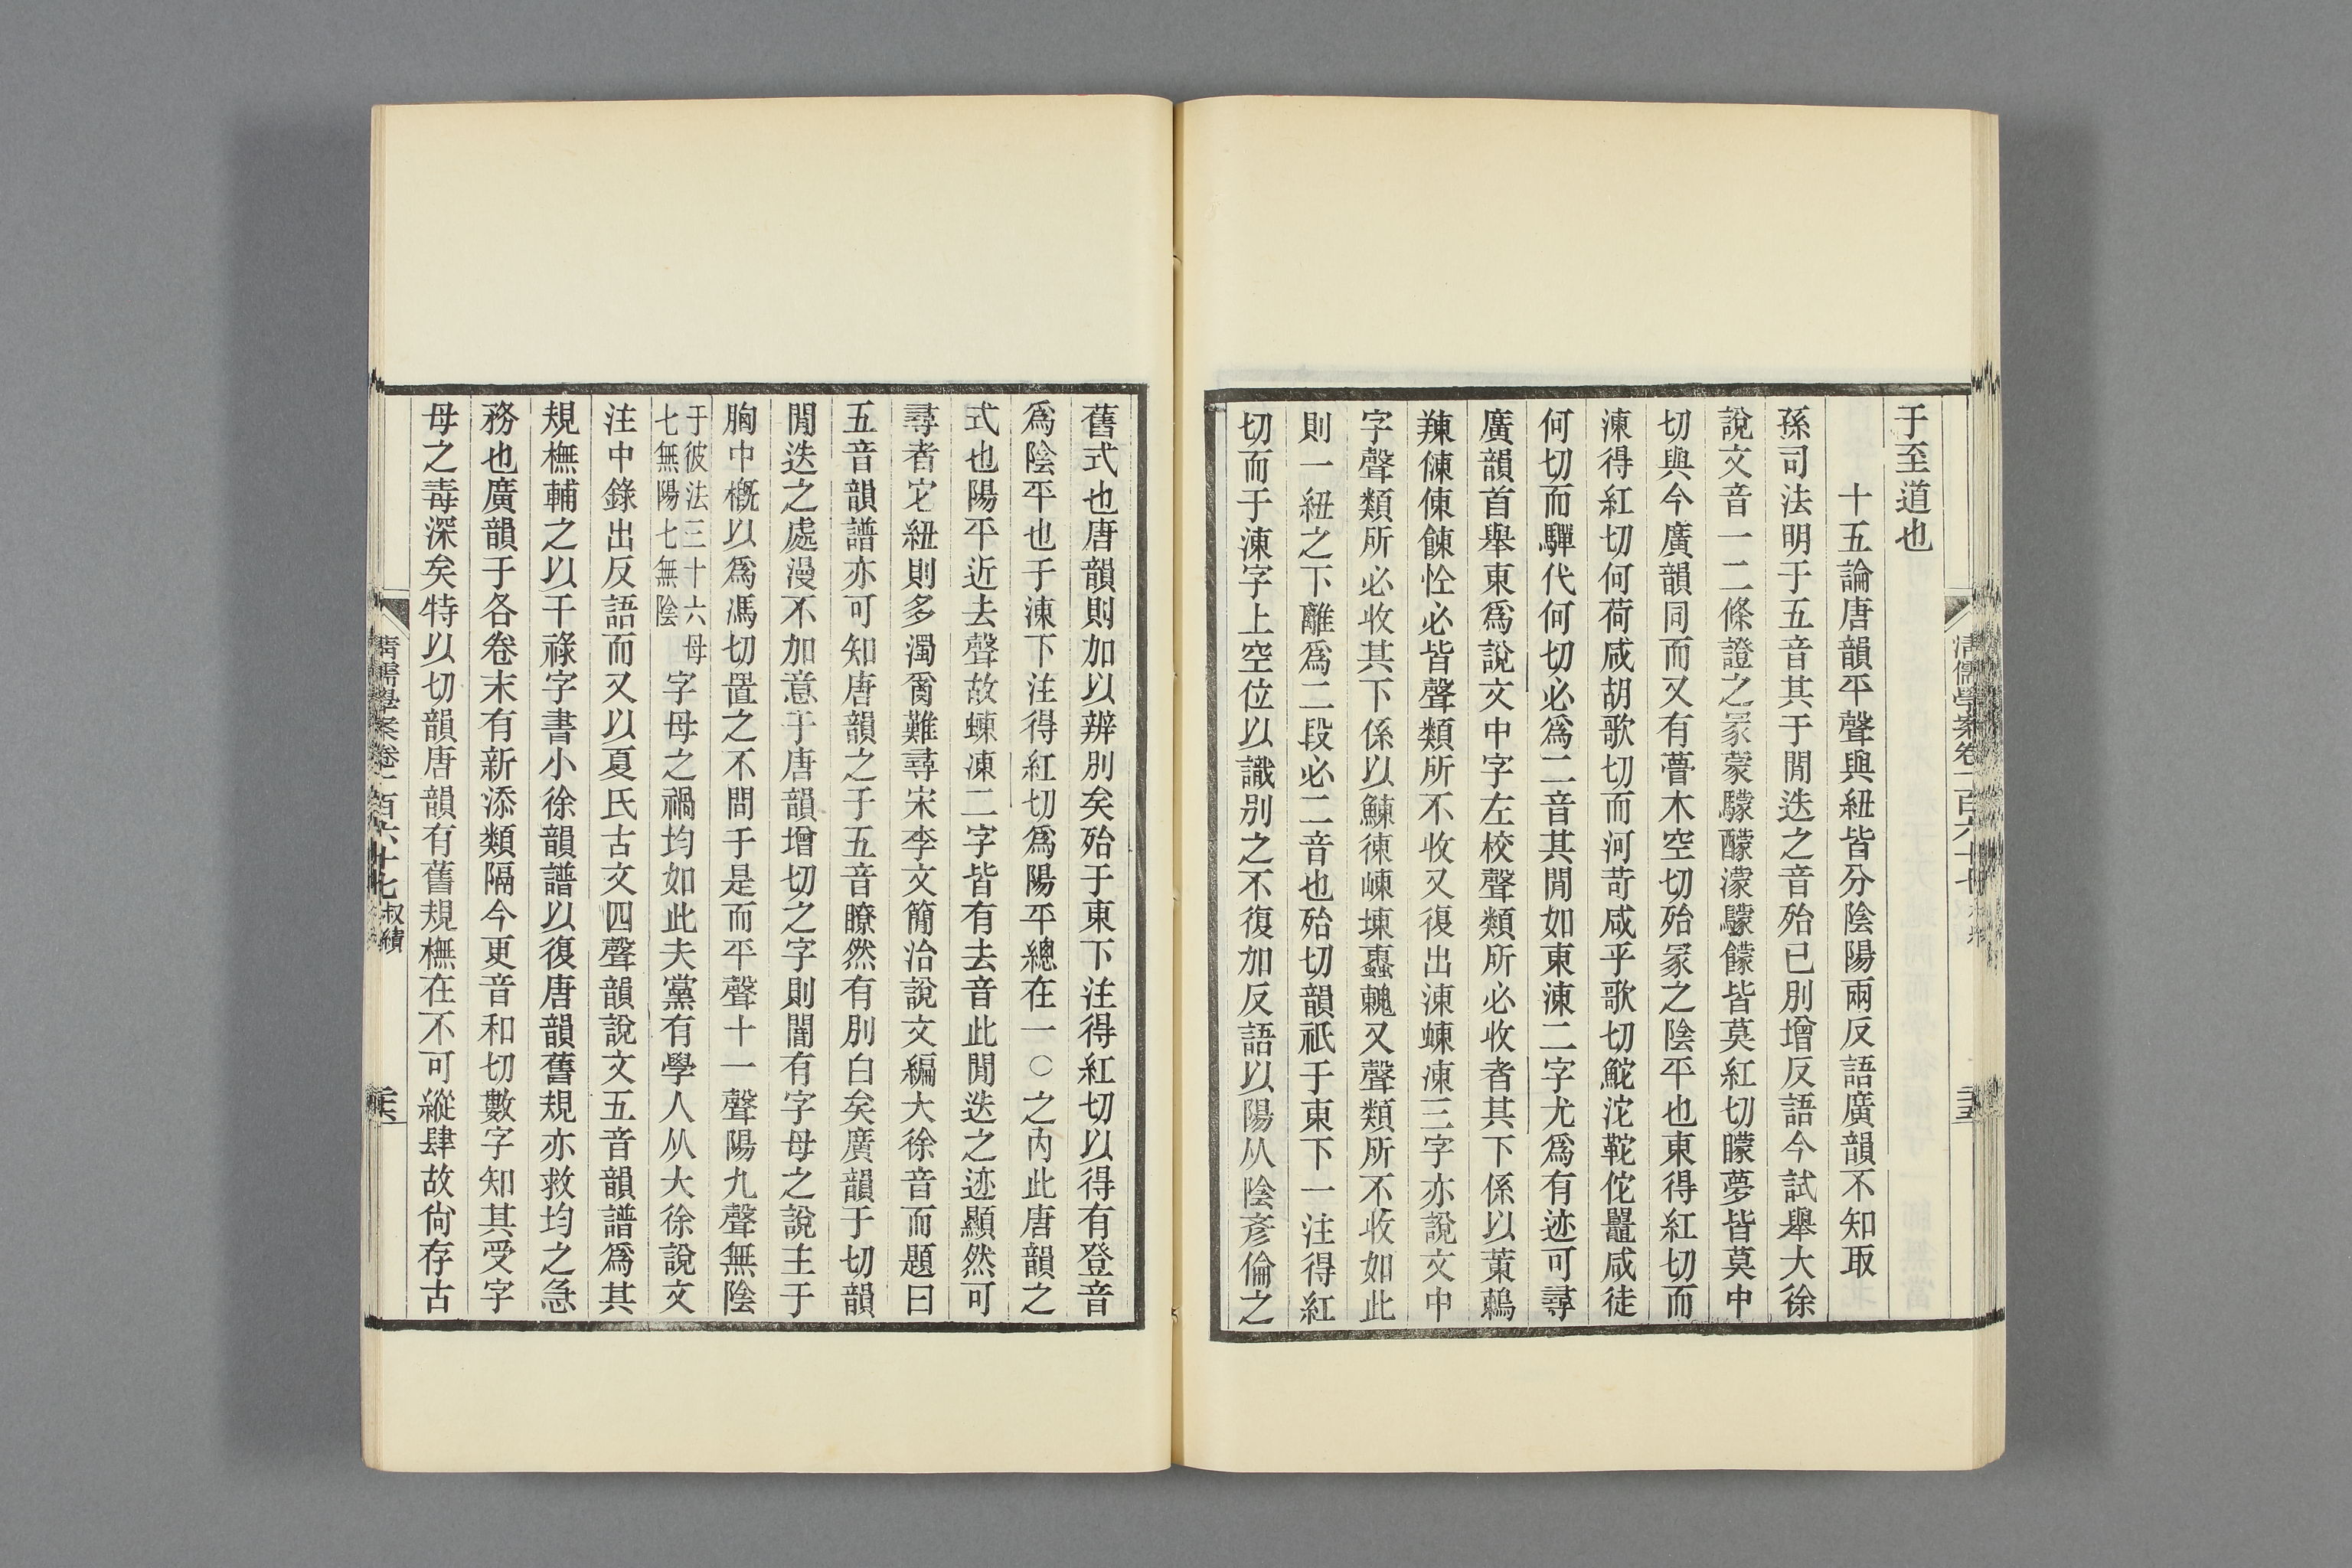 清儒學案卷一百六十七
于至道也
十五論唐韻平聲與紐皆分陰陽兩反語廣韻不知取
孫司法明于五音其于閒迭之音殆已別增反語今試舉大徐
說文音一二條證之冡蒙驟醿濛饛皆莫紅切矇夢皆莫中
切與今廣韻同而又有瞢木空切殆冡之陰平也東得紅切而
涷得紅切何荷咸胡歌切而河苛咸乎歌切鮀沱鞁佗鼉咸徒
何切而驒代何切必爲二音其閒如東涷二字尤爲有迹可尋
廣韻首舉東爲說文中字左校聲類所必收者其下係以菄鶇
䍶𠍀倲餗恮必皆聲類所不收又復出涷蝀凍三字亦說文中
字聲類所必收其下係以鯟徚崠埬䖶䰤又聲類所不收如此
則一紐之下離爲二段必二音也殆切韻祇于東下一注得紅
切而于涷字上空位以識別之不復加反語以陽从陰彥倫之
舊式也唐韻則加以辨別矣殆于東下注得紅切以得有登音
爲陰平也于涷下注得紅切爲陽平總在一○之內此唐韻之
式也陽平近去聲故蝀凍二字皆有去音此閒迭之迹顯然可
尋者它紐則多濁㒺難尋宋李文簡治說文編大徐音而題曰
五音韻譜亦可知唐韻之于五音瞭然有別白矣廣韻于切韻
閒迭之處漫不加意于唐韻增切之字則闇有字母之說主于
胸中概以爲馮切置之不問于是而平聲十一聲陽九聲無陰
于彼法三十六母
七無陽七無陰
字母之禍均如此夫黨有學人从大徐說文
注中錄出反語而又以夏氏古文四聲韻說文五音韻譜爲其
規橅輔之以干祿字書小徐韻譜以復唐韻舊規亦救均之急
務也廣韻于各卷末有新添類隔今更音和切數字知其受字
母之毒深矣特以切韻唐韻有舊規橅在不可縱肆故尙存古
清儒學案卷一百六十七 叔績